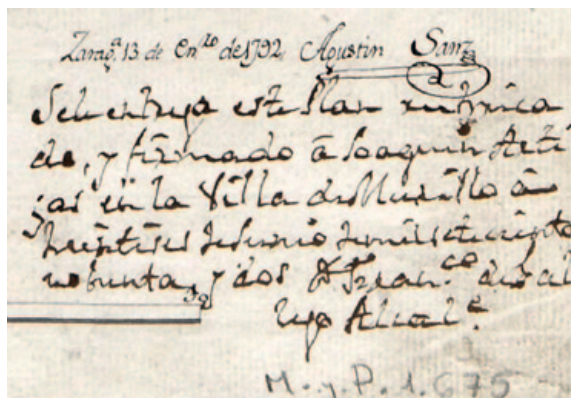 Zarag.ª 13 de En.ro de 1792. Agustin Sanz
Se le entrega este Plan rubrica
do, y firmado â Joaquin Arti
gas en la Villa de Murillo â
veintiseis de Junio de mil setecientos
nobenta, y dos Fran.co
Alcal.e
M. y P. 1.675